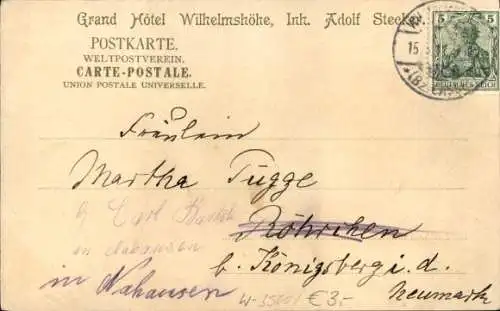 Grand Hôtel Wilhelmshöhe, Inh. Adolf Stecke
POSTKARTE.
WELTPOSTVEREIN.
CARTE-POSTALE.
UNION POSTALE UNIVERSELLE.
5 5
15.
DEUTSCHES REICH
Fräulein
Martha Tugge
b. Carl
Röhrichen
in Nahausen
b. Königsberg i. d.
in Nahausen
Neumark
€ 3.-